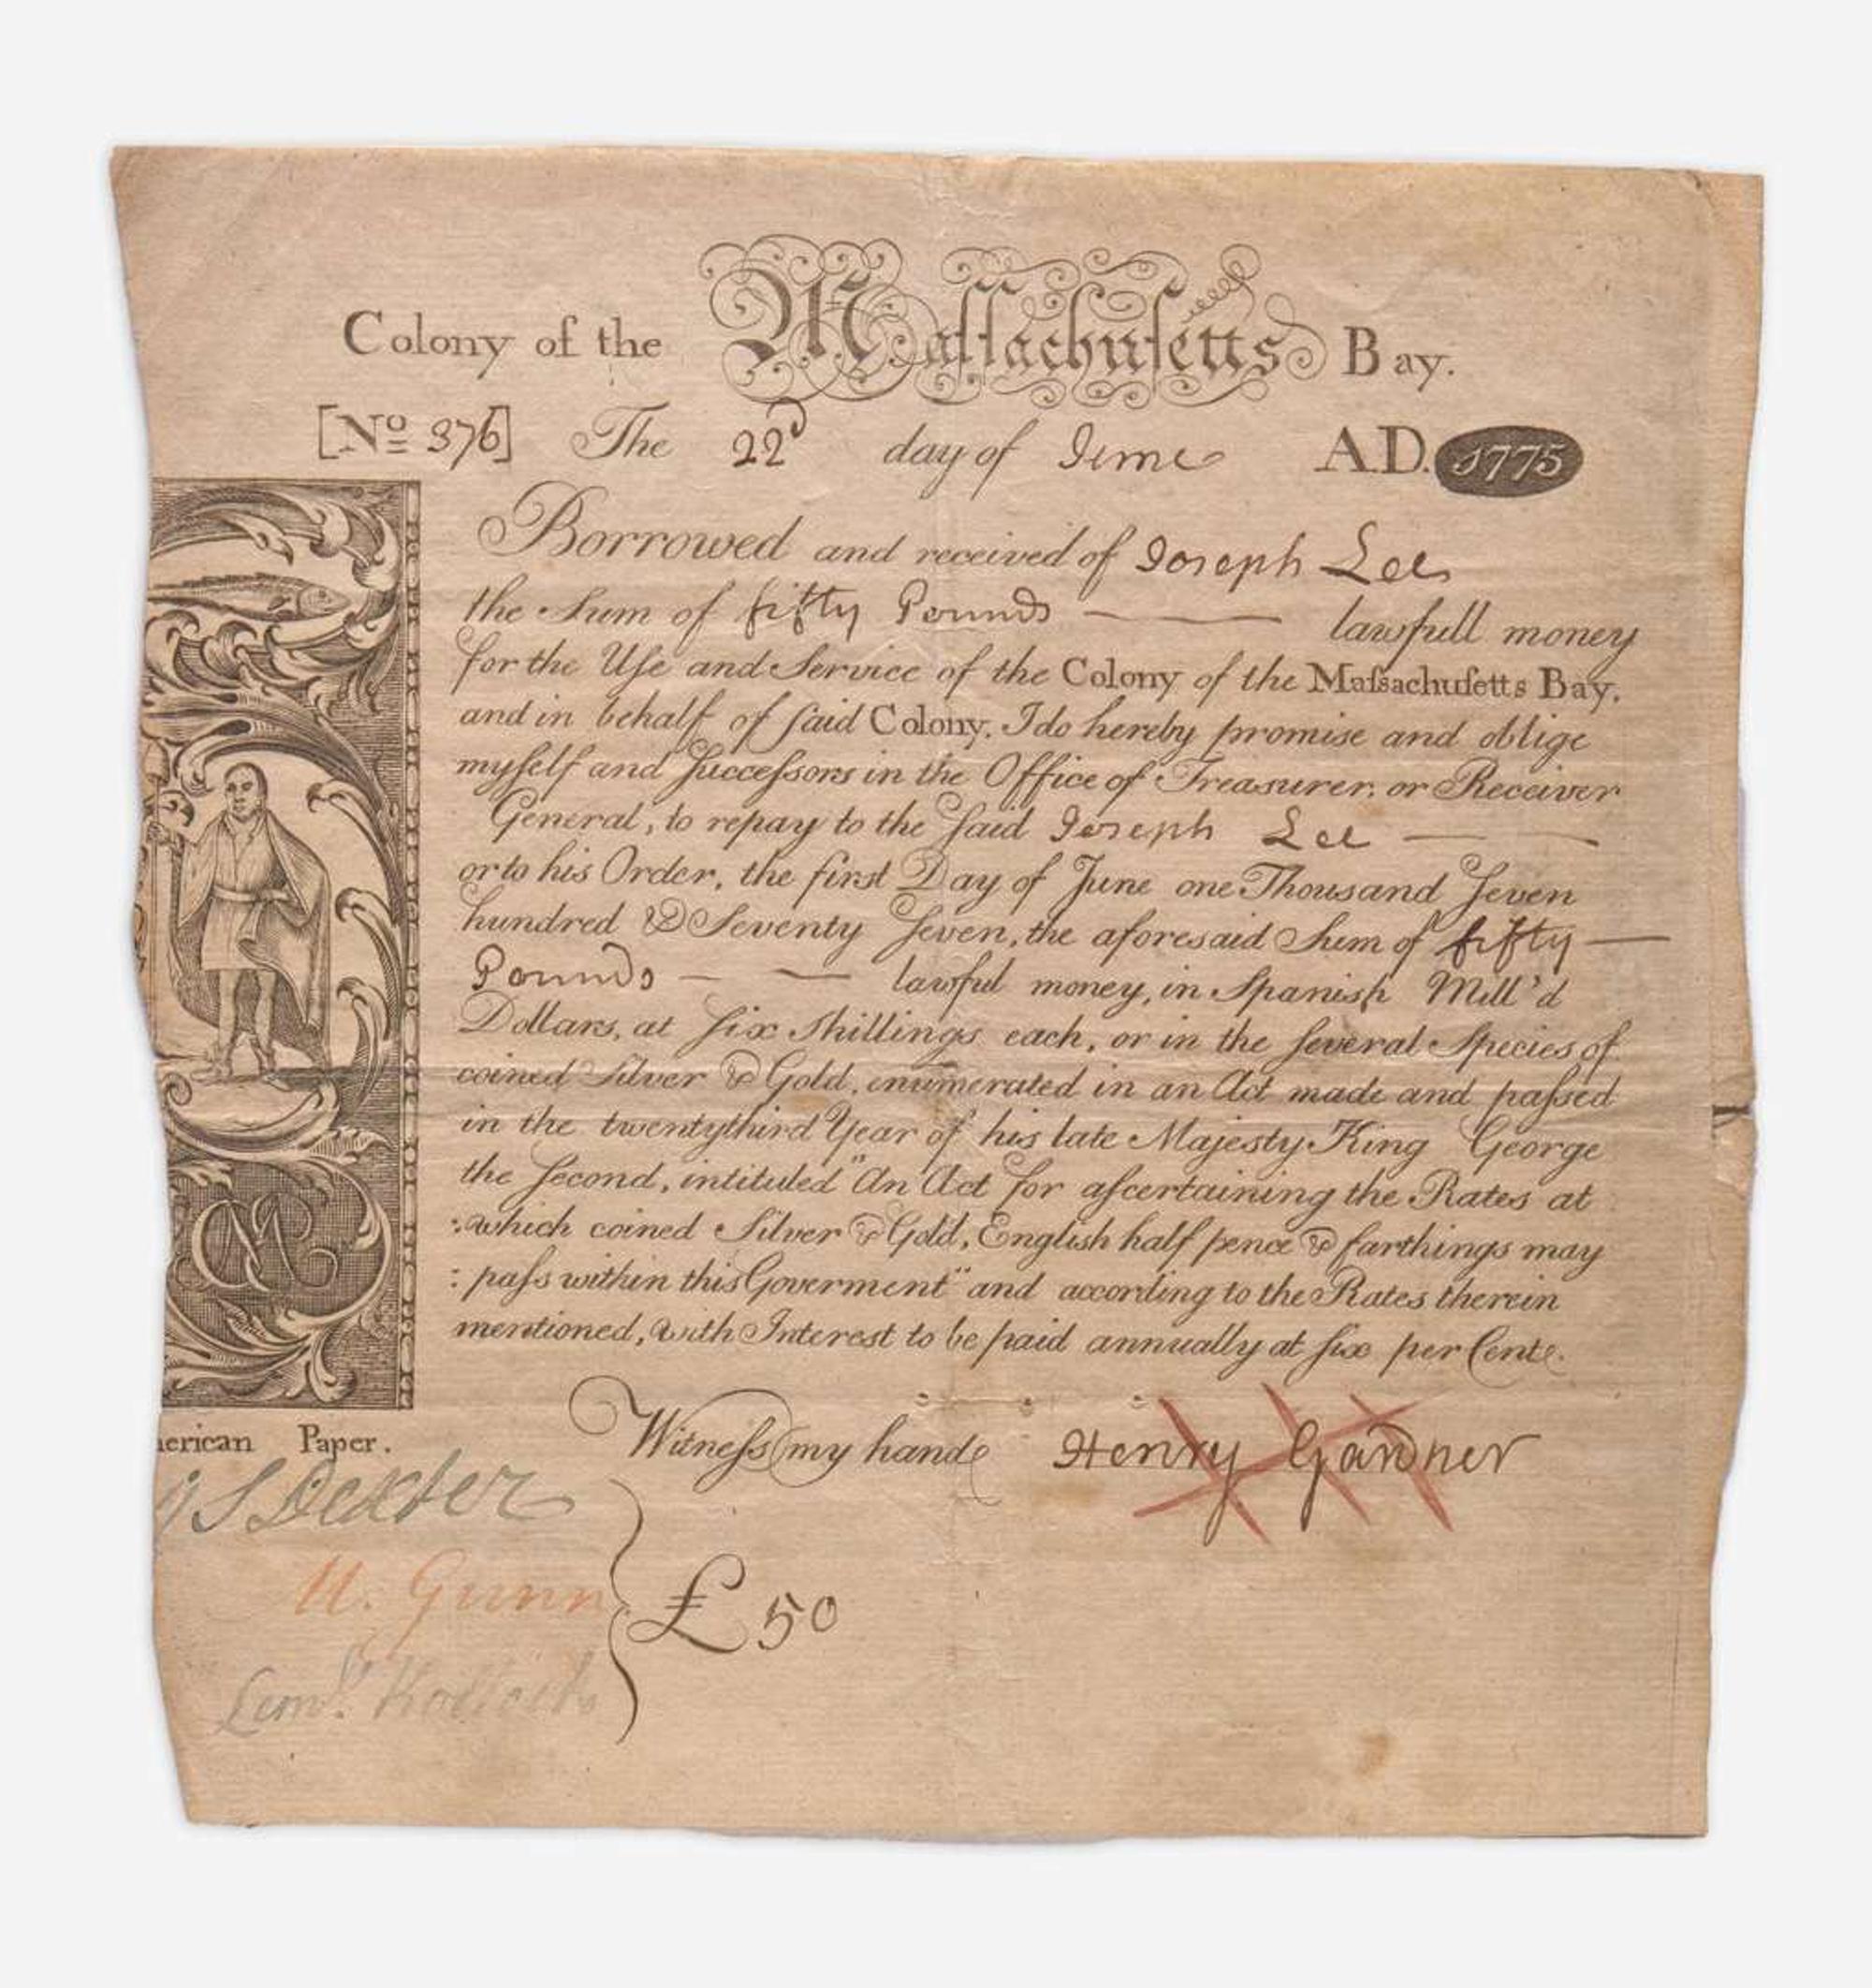 Colony of the Maſſachuſetts Bay.
[No 376] The 22d day of June A.D. 1775
Borrowed and received of Joseph Lee
the Sum of fifty Pounds — lawfull money
for the Uſe and Service of the Colony of the Maſsachuſetts Bay.
and in behalf of ſaid Colony. I do hereby promise and oblige
myſelf and Succeſsors in the Office of Treasurer, or Receiver
General, to repay to the ſaid Joseph Lee — —
or to his Order, the first Day of June one Thousand Seven
hundred & Seventy Seven, the aforesaid Sum of fifty —
Pounds — — lawful money, in Spanish Mill'd
Dollars, at Six Shillings each, or in the ſeveral Species of
coined Silver & Gold, enumerated in an Act made and paſsed
in the twentythird Year of his late Majesty King George
the Second, intituled "An Act for aſcertaining the Rates at
:which coined Silver & Gold, English half pence & farthings may
: paſs within this Goverment" and according to the Rates therein
mentioned, with Interest to be paid annually at ſix per Cent.
Witneſs my hand Henry Gardner
erican Paper.
S Dexter
M. Gunn
£ 50
Leml.